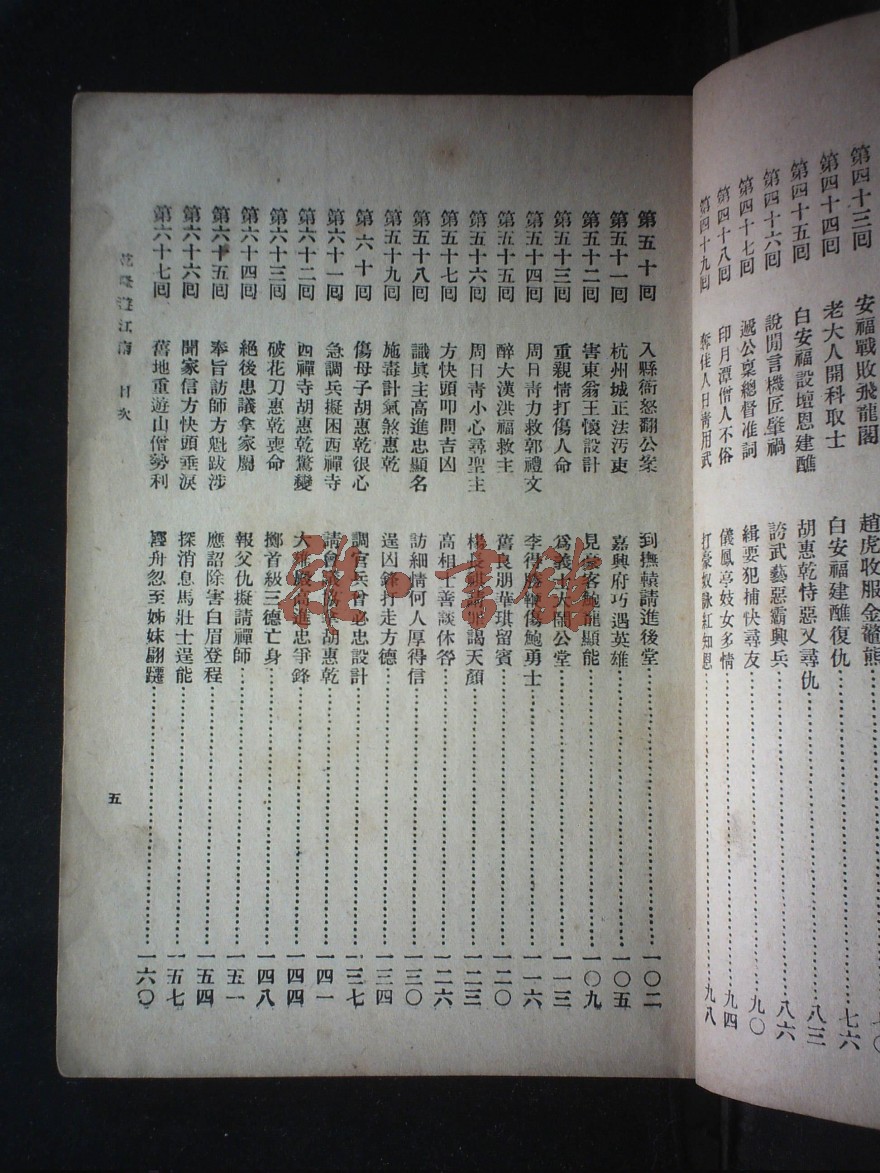 第四十三囘 安福戰敗飛龍閣 趙虎收服金鰲熊
第四十四囘 老大人開科取士 白安福建醮復仇 七六
第四十五囘 白安福設壇恩建醮 胡惠乾恃惡又尋仇 八三
第四十六囘 說閒言機匠肇禍 誇武藝惡霸興兵 八六
第四十七囘 遞公稟總督准詞 緝要犯捕快尋友 九〇
第四十八囘 印月潭僧人不俗 儀鳳亭妓女多情 九四
第四十九囘 奪佳人日靑用武 打豪奴詠紅知恩 九八
第五十囘 入縣衙怒翻公案 到撫轅請進後堂 一〇二
第五十一囘 杭州城正法汚吏 嘉興府巧遇英雄 一〇五
第五十二囘 害東翁王懷設計 見豪客鮑龍顯能 一〇九
第五十三囘 重親情打傷人命 爲義士大鬧公堂 一一三
第五十四囘 周日靑力救郭禮文 李得勝鞭傷鮑勇士 一一六
第五十五囘 醉大漢洪福救主 舊良朋華琪留賓 一二〇
第五十六囘 周日靑小心尋聖主 楊長祺請罪謁天顏 一二三
第五十七囘 方快頭叩問吉凶 高相士善談休咎 一二六
第五十八囘 識眞主高進忠顯名 訪細情何人厚得信 一三〇
第五十九囘 施毒計氣煞惠乾 逞凶鋒打走方德 一三四
第六十囘 傷母子胡惠乾很心 調官兵曾必忠設計 一三七
第六十一囘 急調兵擬困西禪寺 請會 胡惠乾 一四一
第六十二囘 西禪寺胡惠乾驚變 大雄殿高進忠爭鋒 一四四
第六十三囘 破花刀惠乾喪命 擲首級三德亡身 一四八
第六十四囘 絕後患議拿家屬 報父仇擬請禪師 一五一
第六十五囘 奉旨訪師方魁跋涉 應詔除害白眉登程 一五四
第六十六囘 聞家信方快頭垂淚 探消息馬壯士逞能 一五七
第六十七囘 舊地重遊山僧勢利 輕舟忽至姊妹翩躚 一六〇
乾隆遊江南 目次
五
雜一書舖